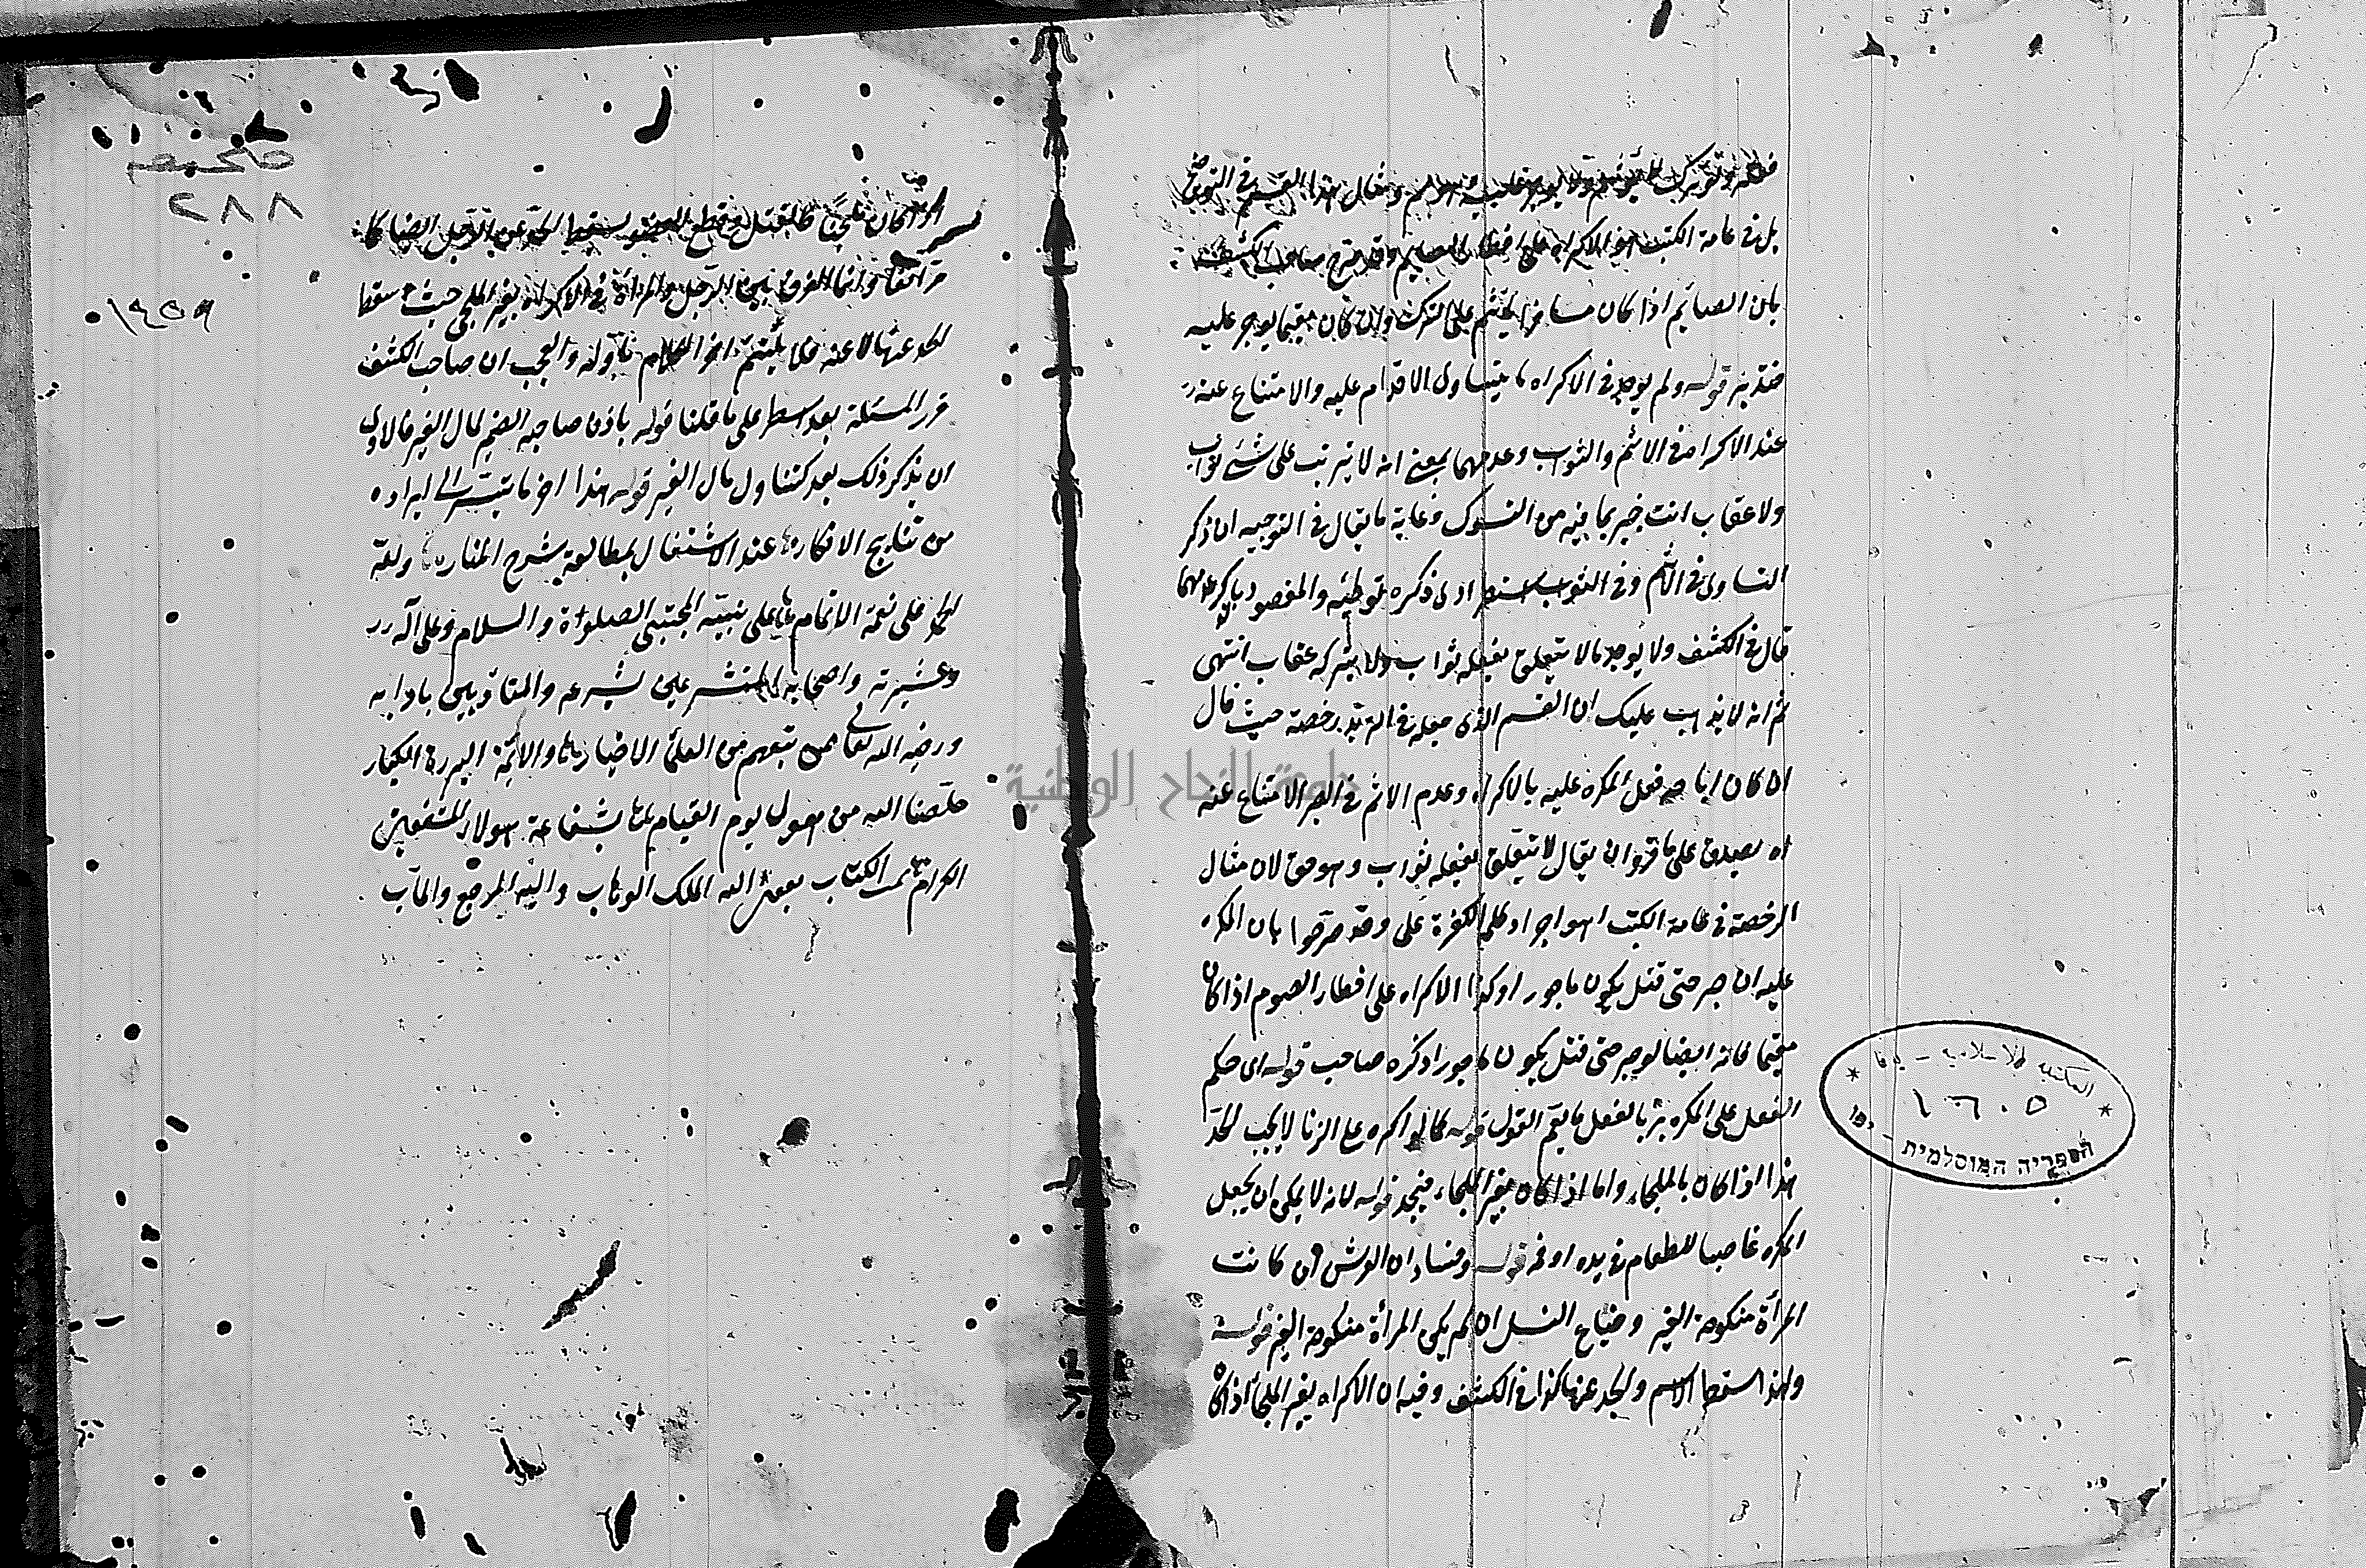 بل في عامة الكتب هو الاكراه على افطار الصايم وقد صرح صاحب الكشف
بان الصايم اذا كان مسافرا ياثم على الترك وان كان مقيما يوجر عليه
قوله ولم يوجد في الاكراه ما يتساوى الاقدام عليه والامتناع عنه
عند الاكراه في الاثم والثواب وعدمهما بمعنى انه لا يترتب على شئ ثواب
ولا عقاب انت خبير بما فيه من الشوك وغاية ما يقال في التوجيه ان ذكر
التساوى في الاثم وفي الثواب استطرادى ذكره توطئه والمقصود ذكر عدمهما
قال في الكشف ولا يوجد ما لا يتعلق بفعله ثواب ولا بتركه عقاب انتهى
ثم انه لا يذهب عليك ان القسم الذى جعله رخصة حيث قال
ان كان اباحه فعل المكره عليه بالاكراه وعدم الاثم في الصبر الامتناع عنه
اه يصدق على ما قرر ان يقال لا يتعلق بفعله ثواب وهو حق لان مثال
الرخصة في عامة الكتب هو اجراء كلمة الكفر على وقد صرحوا بان المكره
عليه ان صبر حتى قتل يكون ماجورا وكذا الاكراه على افطار الصوم اذا كان
مقيما فانه ايضا لو صبر حتى قتل يكون ماجورا ذكره صاحب قوله اى حكم
الفعل على المكره بالفعل ما يعم القول قوله كما لو اكره على الزنا لا يجب الحد
هذا اذا كان بالملجاء واما اذا كان بغير الملجاء فيحد قوله لانه لا يمكن ان يجعل
المكره غاصبا للطعام في يده او فمه قوله وفساد ان الفرش ان كانت
المرأة منكوحة الغير وضياع النسل ان لم يكن المرأة منكوحة الغير قوله
ولهذا سقط الاثم والحد عنها كذا في الكشف وفيه ان الاكراه بغير الملجأ اذا كان
المكتبة الاسلامية - يافا
١٦٠٥
הספריה המוסלמית - יפו
صحيفه
٢٨٨
١٤٥٩
مر آنفا وانما الفرق بين الرجل والمرأة في الاكراه بغير الملجئ حيث سقط
الحد عنها لا عنه فلا يلتئم اخر الكلام باوله والعجب ان صاحب الكشف
قرر المسئلة بعد اسطر على ما قلنا قوله باذن صاحبه الضمير لمال الغير فالاولى
ان يذكر ذلك بعد كتناول مال الغير قوله هذا اخر ما تيسر الى ايراده
من نتايج الافكار عند الاشتغال بمطالعة شرح المنار ولله
الحمد على نعمة الاتمام على نبيه المجتبى الصلوة والسلام وعلى آله
وعشيرته واصحابه المتشرعين بشرعه والمتادبين بادابه
ورضى الله تعالى عمن تبعهم من العلماء الاخيار والائمة البررة الكبار
خلصنا الله من اهوال يوم القيام بشفاعة هولاء المشفعين
الكرام تمت الكتاب بعون الله الملك الوهاب واليه المرجع والمآب
جامعة النجاح الوطنية